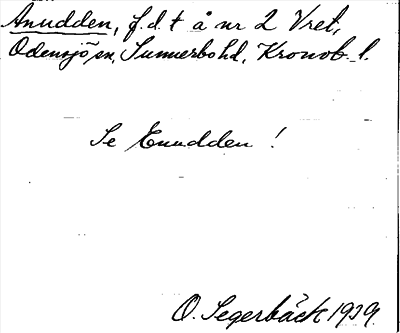 Anudden, f.d. t å nr 2 Vret,
Odensjö sn, Sunnerbo hd, Kronob. l.
Se Enudden !
O. Segerbäck 1929.